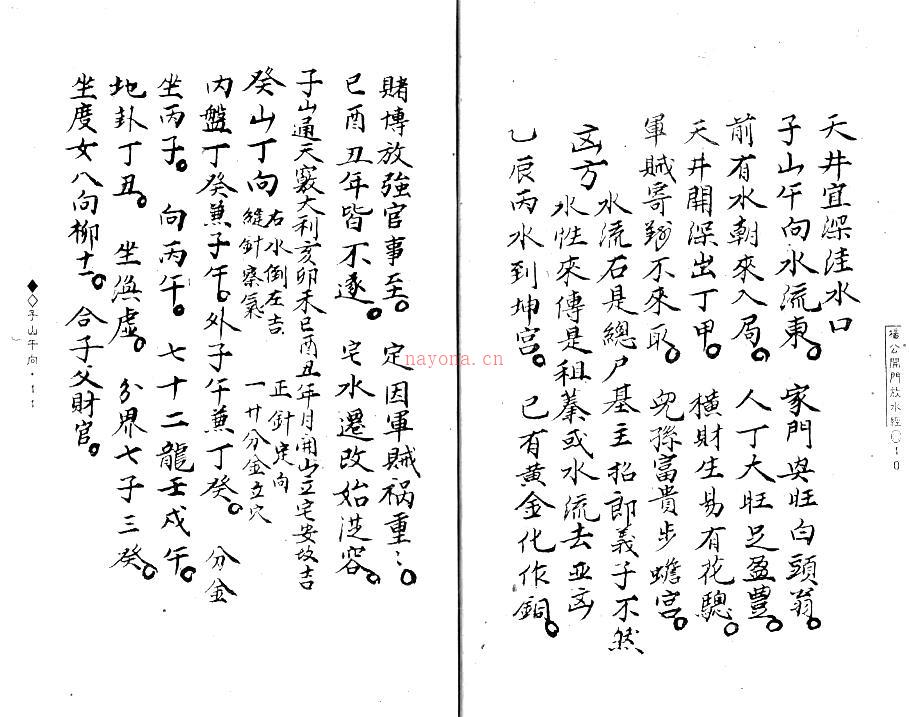 楊公開門放水經 10
天井宜深洼水口
子山午向水流東。 家門興旺白頭翁。
前有水朝來入局。 人丁大旺足盈豊。
天井開深出丁甲。 橫財生易有花驄。
軍賊寄 不來取。 兒孫富貴步蟾宮。
水流石是總尸基主招郎義子不然
凶方 水性來傳是祖墓或水流去亚凶
乙辰丙水到坤宮。 已有黄金化作銅。
賭博放強官事至。 定因軍賊禍重:。
巳酉丑年皆不遂。 宅水遷改始從容。
子山通天竅大利亥卯未巳酉丑年月開山立宅安坟吉
癸山丁向 右水倒左吉 正針定向
縫針察氣 一廿分金立穴
内盤丁癸兼子午。外子午兼丁癸。 分金
坐丙子。 向丙午。 七十二龍壬戌午。
地卦丁丑。 坐渙虚。 分界七子三癸。
坐度女八向柳十一。 合子父財官。
子山午向·11
nayona.cn